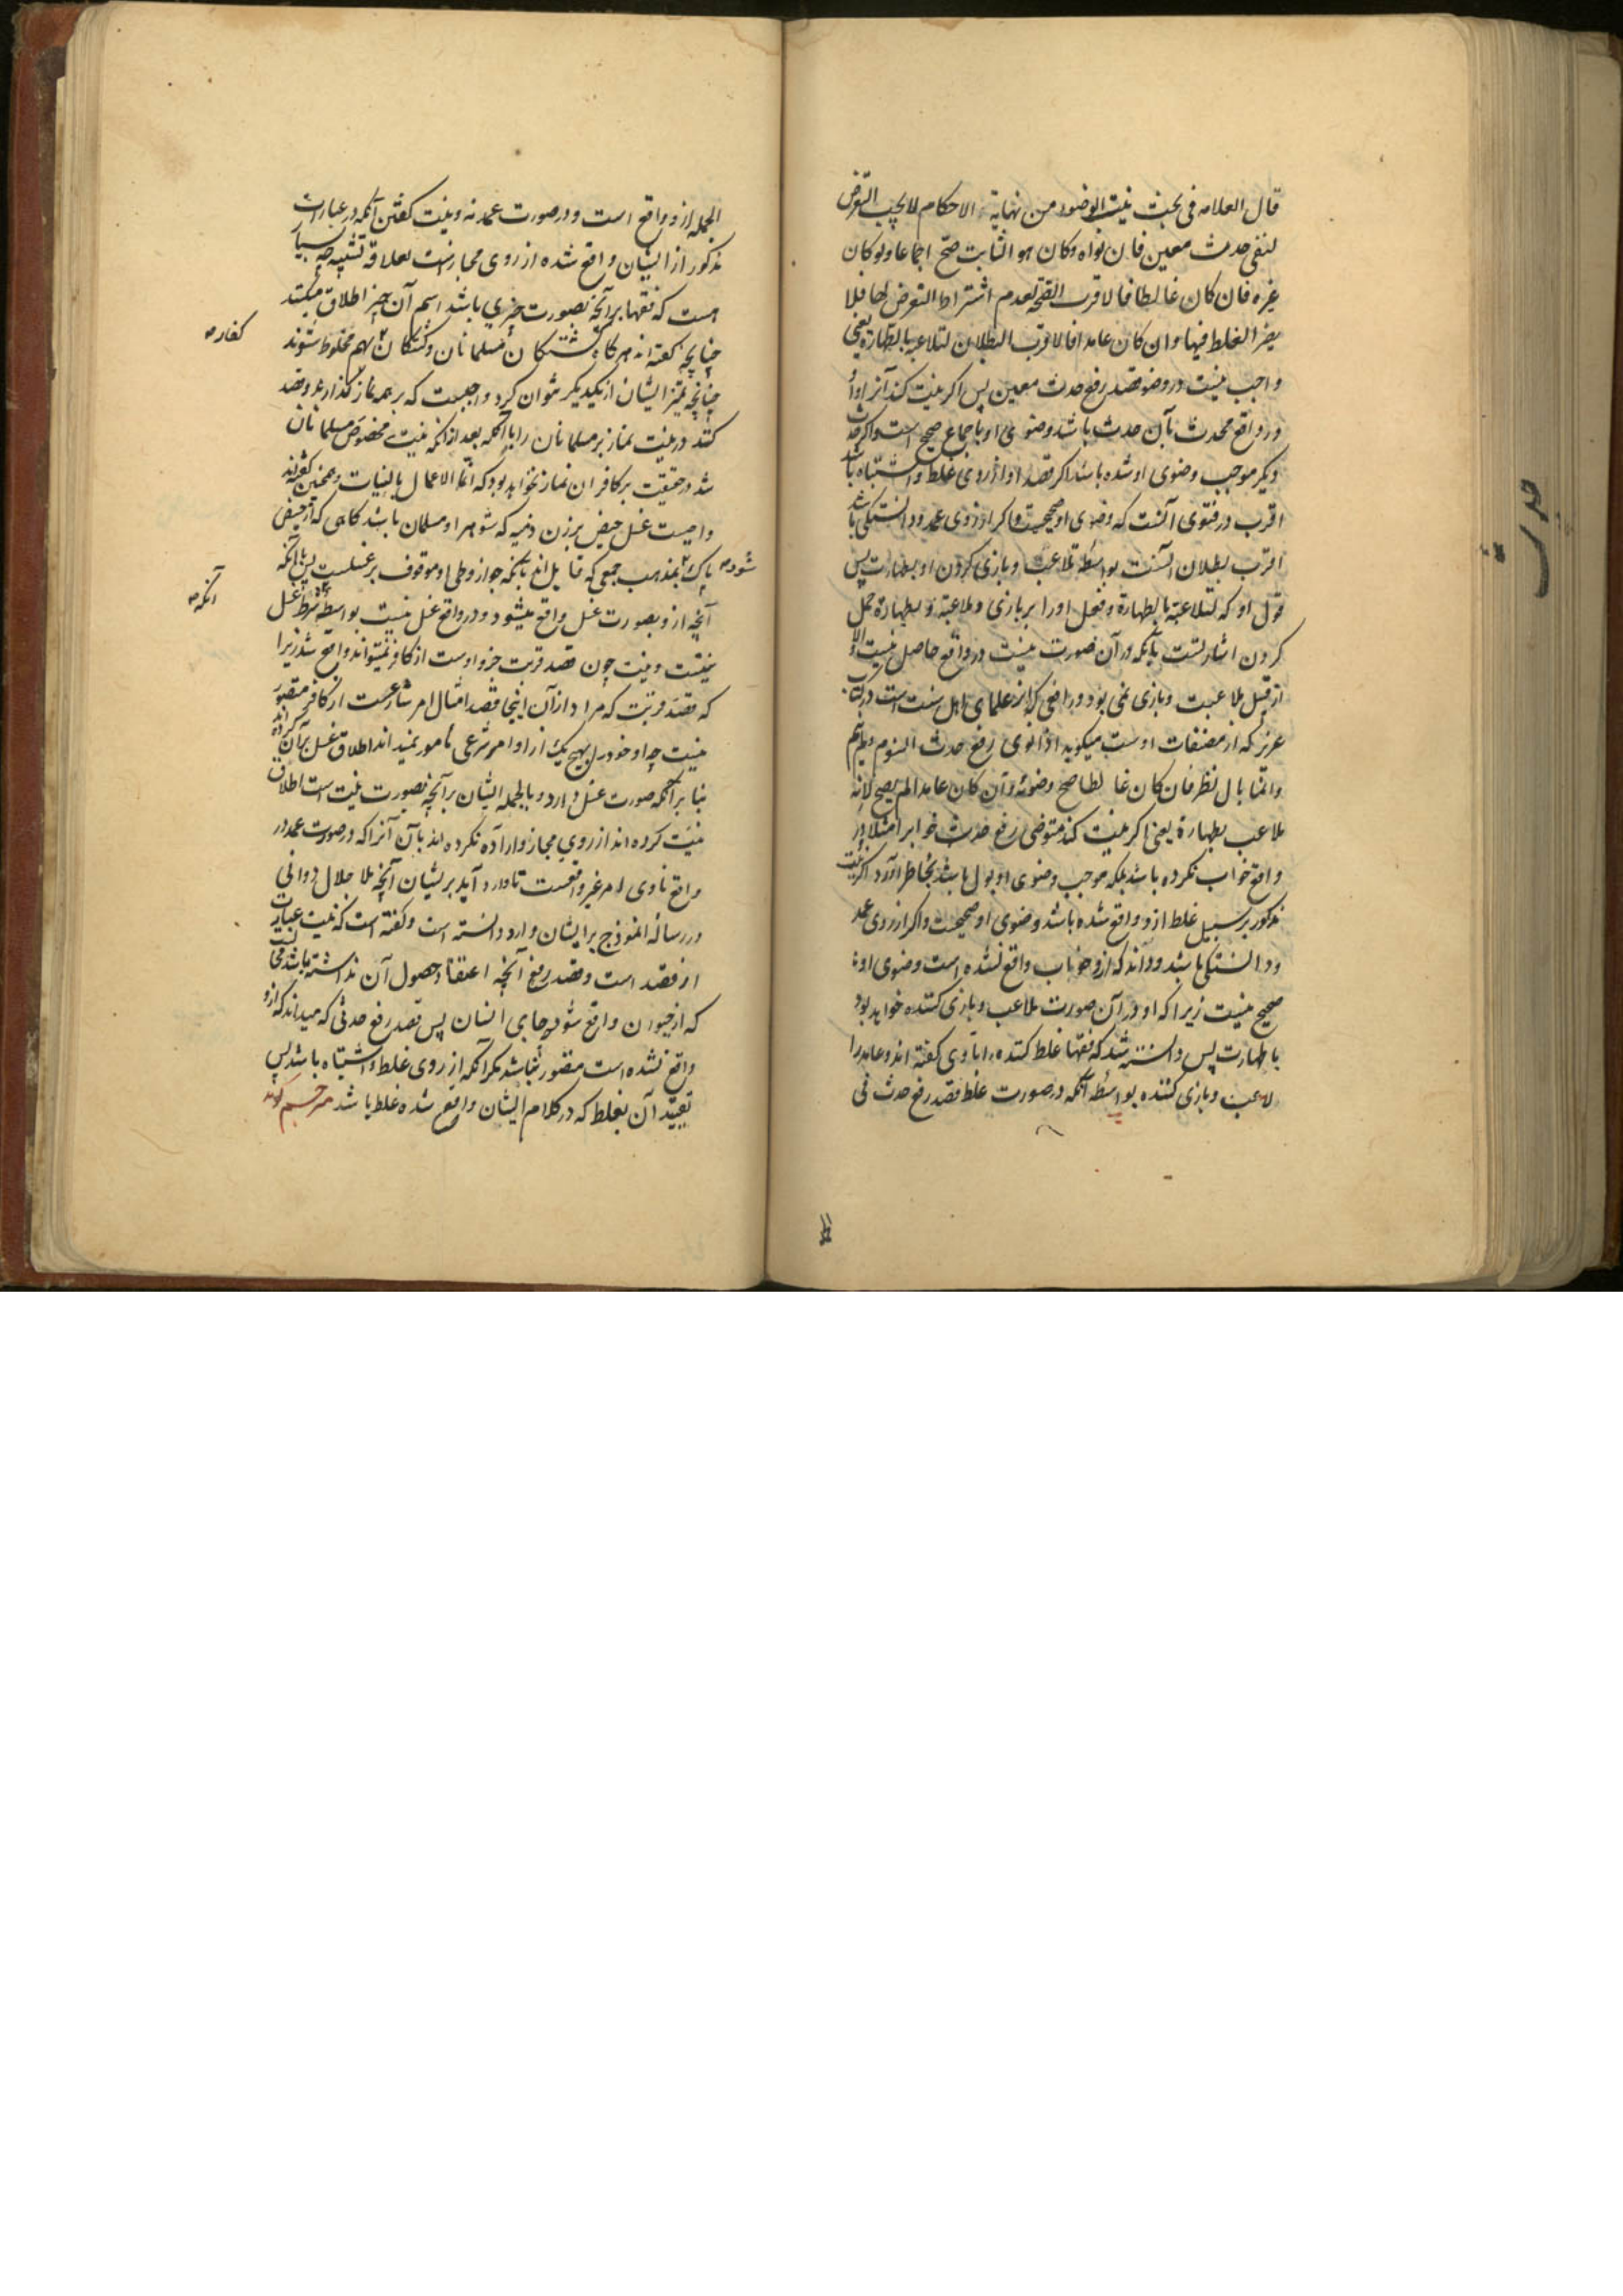 قال العلامه فی بحث نیت الوضوء من نهایة الاحکام لا یجب التعرض
لنفی حدث معین فان نواه وکان هو الثابت صح اجماعا ولو کان
غیره فان کان غالطا فالاقرب الصحة لعدم اشتراط التعرض لها فلا
یضر الغلط فیها وان کان عامدا فالاقرب البطلان لتلاعبه بالطهارة یعنی
واجب نیست در وضو قصد رفع حدث معین پس اکر نیت کند آنرا و او
در واقع محدث بآن حدث باشد وضوی او باجماع صحیح است و اکر حدث
دیکر موجب وضوی او شده باشد اکر قصد او از روی غلط و اشتباه باشد
اقرب در فتوی آنست که وضوی او صحیحست و اکر از روی عمد و دانستکی باشد
اقرب بطلان آنست بواسطه تلاعب و بازی کردن او بطهارت پس
قول او که لتلاعبه بالطهارة و فعل او را بر بازی و ملاعبه و بطهارة حمل
کردن اشارتست بآنکه در آن صورت نیت در واقع حاصل نیست و الا
از قبیل ملاعبت و بازی نمی بود و رافعی که از علمای اهل سنت است در کتاب
عزیز که از مصنفات اوست میکوید اذا نوی رفع حدث النوم و لم ینم
وانما بال نظر فان کان غالطا صح وضوئه وان کان عامدا لم یصح لانه
ملاعب بطهارة یعنی اکر نیت کند متوضی رفع حدث خواب را مثلا و در
واقع خواب نکرده باشد بلکه موجب وضوی او بول باشد بخاطر آورد اکر نیت
مذکور بر سبیل غلط ازو واقع شده باشد وضوی او صحیحست و اکر از روی عمد
و دانستکی باشد و داند که ازو خواب واقع نشده است وضوی او
صحیح نیست زیرا که او در آن صورت ملاعب و بازی کننده خواهد بود
با طهارت پس دانسته شد که فقها غلط کننده را ناوی کفته اند و عامد را
لاعب و بازی کننده بواسطه آنکه در صورت غلط قصد رفع حدث فی
حدث
الجمله ازو واقع است و در صورت عمد نه و نیت کفتن آنکه در عبارات
مذکور از ایشان واقع شده از روی مجازست بعلاقه تشبیه چه بسیار
است که فقها بر آنچه بصورت چیزی باشد اسم آن چیز اطلاق میکنند
چنانچه کفته اند هر کاه کشتکان مسلمانان و کشتکان بهم مخلوط شوند
کفار
چنانچه تمیز ایشان از یکدیکر نتوان کرد واجبست که بر همه نماز کذارند و قصد
کنند در نیت نماز بر مسلمانان را با آنکه بعد از آنکه نیت مخصوص مسلمانان
شد در حقیقت بر کافران نماز نخواهد بود که انما الاعمال بالنیات و همچنین کفته اند
واجبست غسل حیض بر زن ذمیه که شوهر او مسلمان باشد کاهی که از حیض
پاک بمذهب جمعی که قایل اند بآنکه جواز وطی او موقوف بر غسلست با آنکه
شود
آنچه ازو بصورت غسل واقع میشود در واقع غسل نیست بواسطه شرط غسل
آنکه
نیتست و نیت چون قصد قربت جزو اوست از کافر نمیتواند واقع شد زیرا
که قصد قربت که مراد از آن اینجا قصد امتثال امر شارعست از کافر متصور
نیست چه او خود را بهیچ یک از اوامر شرعی مامور نمیداند اطلاق غسل بر آن کرده اند
بنا بر آنکه صورت غسل دارد و بالجمله ایشان بر آنچه بصورت نیت است اطلاق
نیت کرده اند از روی مجاز و اراده نکرده اند بآن آنرا که در صورت عمد در
واقع ناوی امر غیر واقعست تا وارد آید بر ایشان آنچه ملا جلال دوانی
در رساله انموذج بر ایشان وارد دانسته است و کفته است که نیت عبارت
از قصد است و قصد رفع آنچه اعتقاد حصول آن نداشته باشد محالست
که از حیوان واقع شود چه جای انسان پس قصد رفع حدثی که میداند که ازو
واقع نشده است متصور نباشد مکر آنکه از روی غلط و اشتباه باشد پس
تقیید آن بغلط که در کلام ایشان واقع شده غلط باشد مترجم کوید